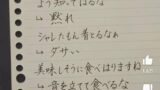 よう知ってはるな
↳黙れ
シャレたもん着とるなぁ
↳ダサい
美味しそうに食べはりますね
↳音を立てて食べるな